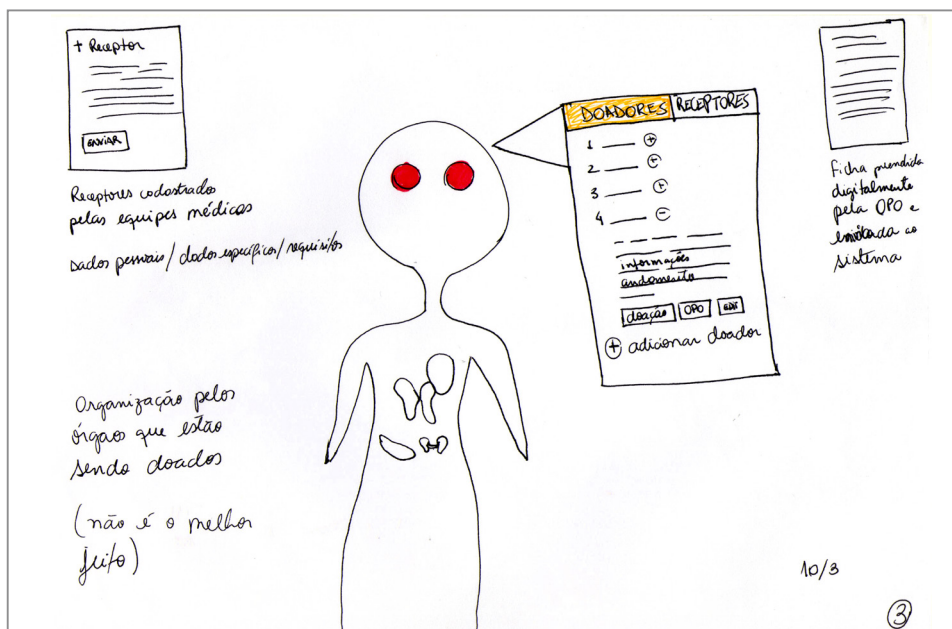 + Receptor
ENVIAR
Receptores cadastrados
pelas equipes médicas
Dados pessoais / dados específicos / requisitos
Organização pelos
órgãos que estão
sendo doados
(não é o melhor
jeito)
DOADORES RECEPTORES
1
2
3
4
informações
andamento
doação OPO
adicionar doador
Ficha
digitalmente
pela OPO e
enviada ao
sistema
10/3
3